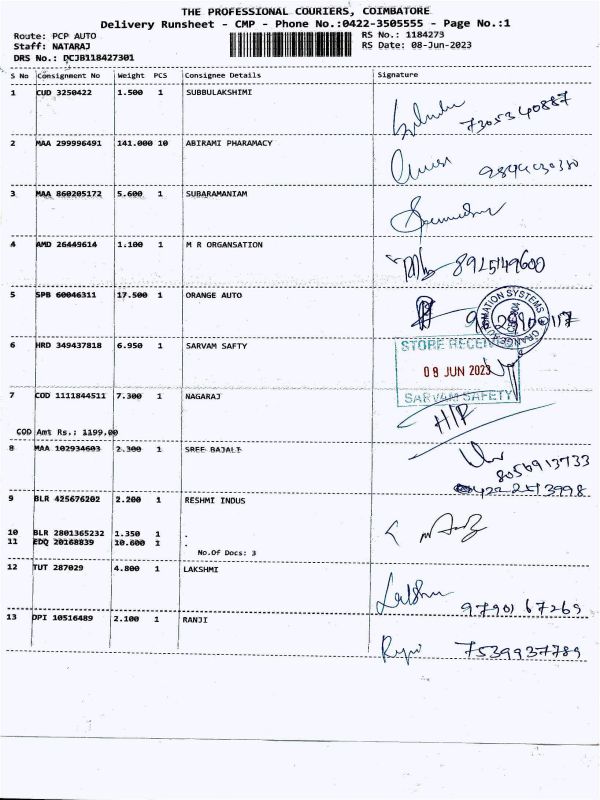 THE PROFESSIONAL COURIERS, COIMBATORE
Delivery Runsheet - CMP - Phone No.:0422-3505555 - Page No.:1
Route: PCP AUTO RS No.: 1184273
Staff: NATARAJ RS Date: 08-Jun-2023
DRS No.: DCJB118427301
S No Consignment No Weight PCS Consignee Details Signature
1 CUD 3250422 1.500 1 SUBBULAKSHIMI
7305340887
2 MAA 299996491 141.000 10 ABIRAMI PHARAMACY
3 MAA 860205172 5.600 1 SUBARAMANIAM
4 AMD 26449614 1.100 1 M R ORGANSATION
8925149600
5 SPB 60046311 17.500 1 ORANGE AUTO
6 HRD 349437818 6.950 1 SARVAM SAFTY
STORE RECEIVED
09 JUN 2023
SARVAM SAFETY
7 COD 1111844511 7.300 1 NAGARAJ
H/P
COD Amt Rs.: 1199.00
8 MAA 102934603 2.300 1 SREE BAJALI
8056913733
0422 2413998
9 BLR 425676202 2.200 1 RESHMI INDUS
10 BLR 2801365232 1.350 1 .
11 EDQ 20168839 10.600 1 .
No.Of Docs: 3
12 TUT 287029 4.800 1 LAKSHMI
Lakshmi
9790167269
13 DPI 10516489 2.100 1 RANJI
7539937789